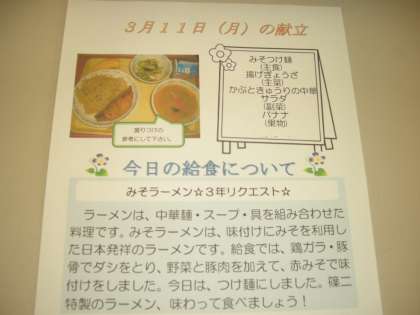 3月11日（月）の献立
みそつけ麺
(主食)
揚げぎょうざ
(主菜)
かぶときゅうりの中華
サラダ
(副菜)
バナナ
(果物)
盛りつけの
参考にして下さい。
今日の給食について
みそラーメン☆3年リクエスト☆
ラーメンは、中華麺・スープ・具を組み合わせた
料理です。みそラーメンは、味付けにみそを利用し
た日本発祥のラーメンです。給食では、鶏ガラ・豚
骨でダシをとり、野菜と豚肉を加えて、赤みそで味
付けをしました。今日は、つけ麺にしました。篠二
特製のラーメン、味わって食べましょう！